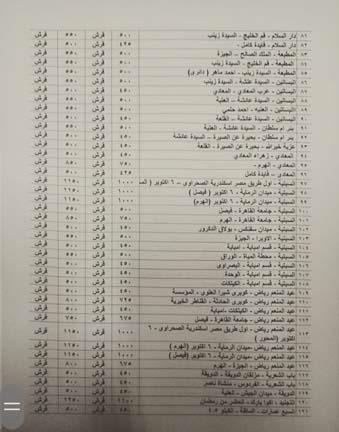 ٨١ دار السلام - فم الخليج - السيدة زينب ٥٠٠ قرش ٥٥٠ قرش
٨٢ دار السلام - فايدة كامل ٤٢٥ قرش ٥٠٠ قرش
٨٣ المطبعة - الملك الصالح - الجيزة ٥٠٠ قرش ٥٥٠ قرش
٨٤ المطبعة - فم الخليج - السيدة زينب ٥٠٠ قرش ٥٥٠ قرش
٨٥ المطبعة - السيدة زينب - احمد ماهر (دائرى) ٤٥٠ قرش ٥٠٠ قرش
٨٦ البساتين - السيدة عائشة - السيدة زينب ٥٠٠ قرش ٥٥٠ قرش
٨٧ البساتين - عرب المعادي - المعادي ٤٥٠ قرش ٥٠٠ قرش
٨٨ البساتين - السيدة عائشة - العتبة ٥٠٠ قرش ٥٥٠ قرش
٨٩ البساتين - العتبه - احمد حلمي ٥٠٠ قرش ٥٥٠ قرش
٩٠ البساتين - السيدة عائشة - القلعة ٤٥٠ قرش ٥٠٠ قرش
٩١ بئر ام سلطان - السيدة عائشة - العتبة ٥٠٠ قرش ٥٥٠ قرش
٩٢ بئر ام سلطان - بحيرة عين الصيرة - السيدة عائشة ٤٥٠ قرش ٥٠٠ قرش
٩٣ عزبة خيرالله - بحيرة عين الصيرة - القلعة ٤٥٠ قرش ٥٠٠ قرش
٩٤ المعادي - زهراء المعادي ٤٥٠ قرش ٥٠٠ قرش
٩٥ المعادي - الهرم ٧٥٠ قرش ٨٥٠ قرش
٩٦ المعادي - فايدة كامل ٤٢٥ قرش ٥٠٠ قرش
٩٧ السبتية - اول طريق مصر اسكندرية الصحراوي - ٦ اكتوبر ١٠٠٠ قرش ١١٥٠ قرش
٩٨ السبتية - ميدان الرماية - ٦ اكتوبر (فيصل) ١٠٠٠ قرش ١١٥٠ قرش
٩٩ السبتية - ميدان الرماية - ٦ اكتوبر (الهرم) ١٠٠٠ قرش ١١٥٠ قرش
١٠٠ السبتية - جامعة القاهرة - فيصل ٥٠٠ قرش ٥٥٠ قرش
١٠١ السبتية - جامعة القاهرة - الهرم ٧٥٠ قرش ٨٥٠ قرش
١٠٢ السبتية - ميدان سفنكس - بولاق الدكرور ٤٥٠ قرش ٥٠٠ قرش
١٠٣ السبتية - الاوبرا - الجيزة ٤٥٠ قرش ٥٠٠ قرش
١٠٤ السبتية - قسم امبابة - امبابة ٤٥٠ قرش ٥٠٠ قرش
١٠٥ السبتية - محطة المياة - الوراق ٤٥٠ قرش ٥٠٠ قرش
١٠٦ السبتية - قسم امبابة - البصراوى ٤٥٠ قرش ٥٠٠ قرش
١٠٧ السبتية - قسم امبابة - الوحدة ٤٥٠ قرش ٥٠٠ قرش
١٠٨ السبتية - قسم امبابة - الكيتكات ٤٥٠ قرش ٥٠٠ قرش
١٠٩ عبد المنعم رياض - كوبري شبرا العلوي - المؤسسة ٤٥٠ قرش ٥٠٠ قرش
١١٠ عبد المنعم رياض - كوبري الحادثة - القناطر الخيرية ٧٢٥ قرش
١١١ عبد المنعم رياض - الكيتكات - امبابة ٤٥٠ قرش ٥٠٠ قرش
١١٢ عبد المنعم رياض - جامعة القاهرة - فيصل ٦٧٥ قرش ٧٥٠ قرش
١١٣ عبد المنعم رياض - اول طريق مصر اسكندرية الصحراوي - ٦ اكتوبر (المحور) ١٠٠٠ قرش ١١٥٠ قرش
١١٤ عبد المنعم رياض - ميدان الرماية - ٦ اكتوبر (الهرم) ١٠٠٠ قرش ١١٥٠ قرش
١١٥ عبد المنعم رياض - ميدان الرماية - ٦ اكتوبر (فيصل) ١٠٠٠ قرش ١١٥٠ قرش
١١٦ عبد المنعم رياض - الجيزة - الهرم ٦٧٥ قرش ٨٠٠ قرش
١١٧ باب الشعرية - مزلقان الدويقة - الدويقة ٤٥٠ قرش ٥٠٠ قرش
١١٨ باب الشعرية - الفردوس - منشاة ناصر ٤٥٠ قرش ٥٠٠ قرش
١١٩ العتبة - ميدان الجيش - العتبة ٤٥٠ قرش ٥٠٠ قرش
١٢٠ اكوا بارك - العاشر من رمضان ١١٠٠ قرش ١٢٥٠ قرش
١٢١ السبع عمارات - الماظة - الكيلو ٤.٥ ٤٥٠ قرش ٥٠٠ قرش